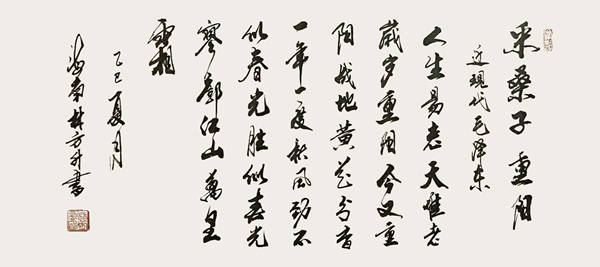 采桑子 重阳
近现代毛泽东
人生易老天难老
岁岁重阳今又重
阳战地黄花分香
一年一度秋风劲不
似春光胜似春光
寥廓江山萬里
霜
乙巳夏月
海南林方升書